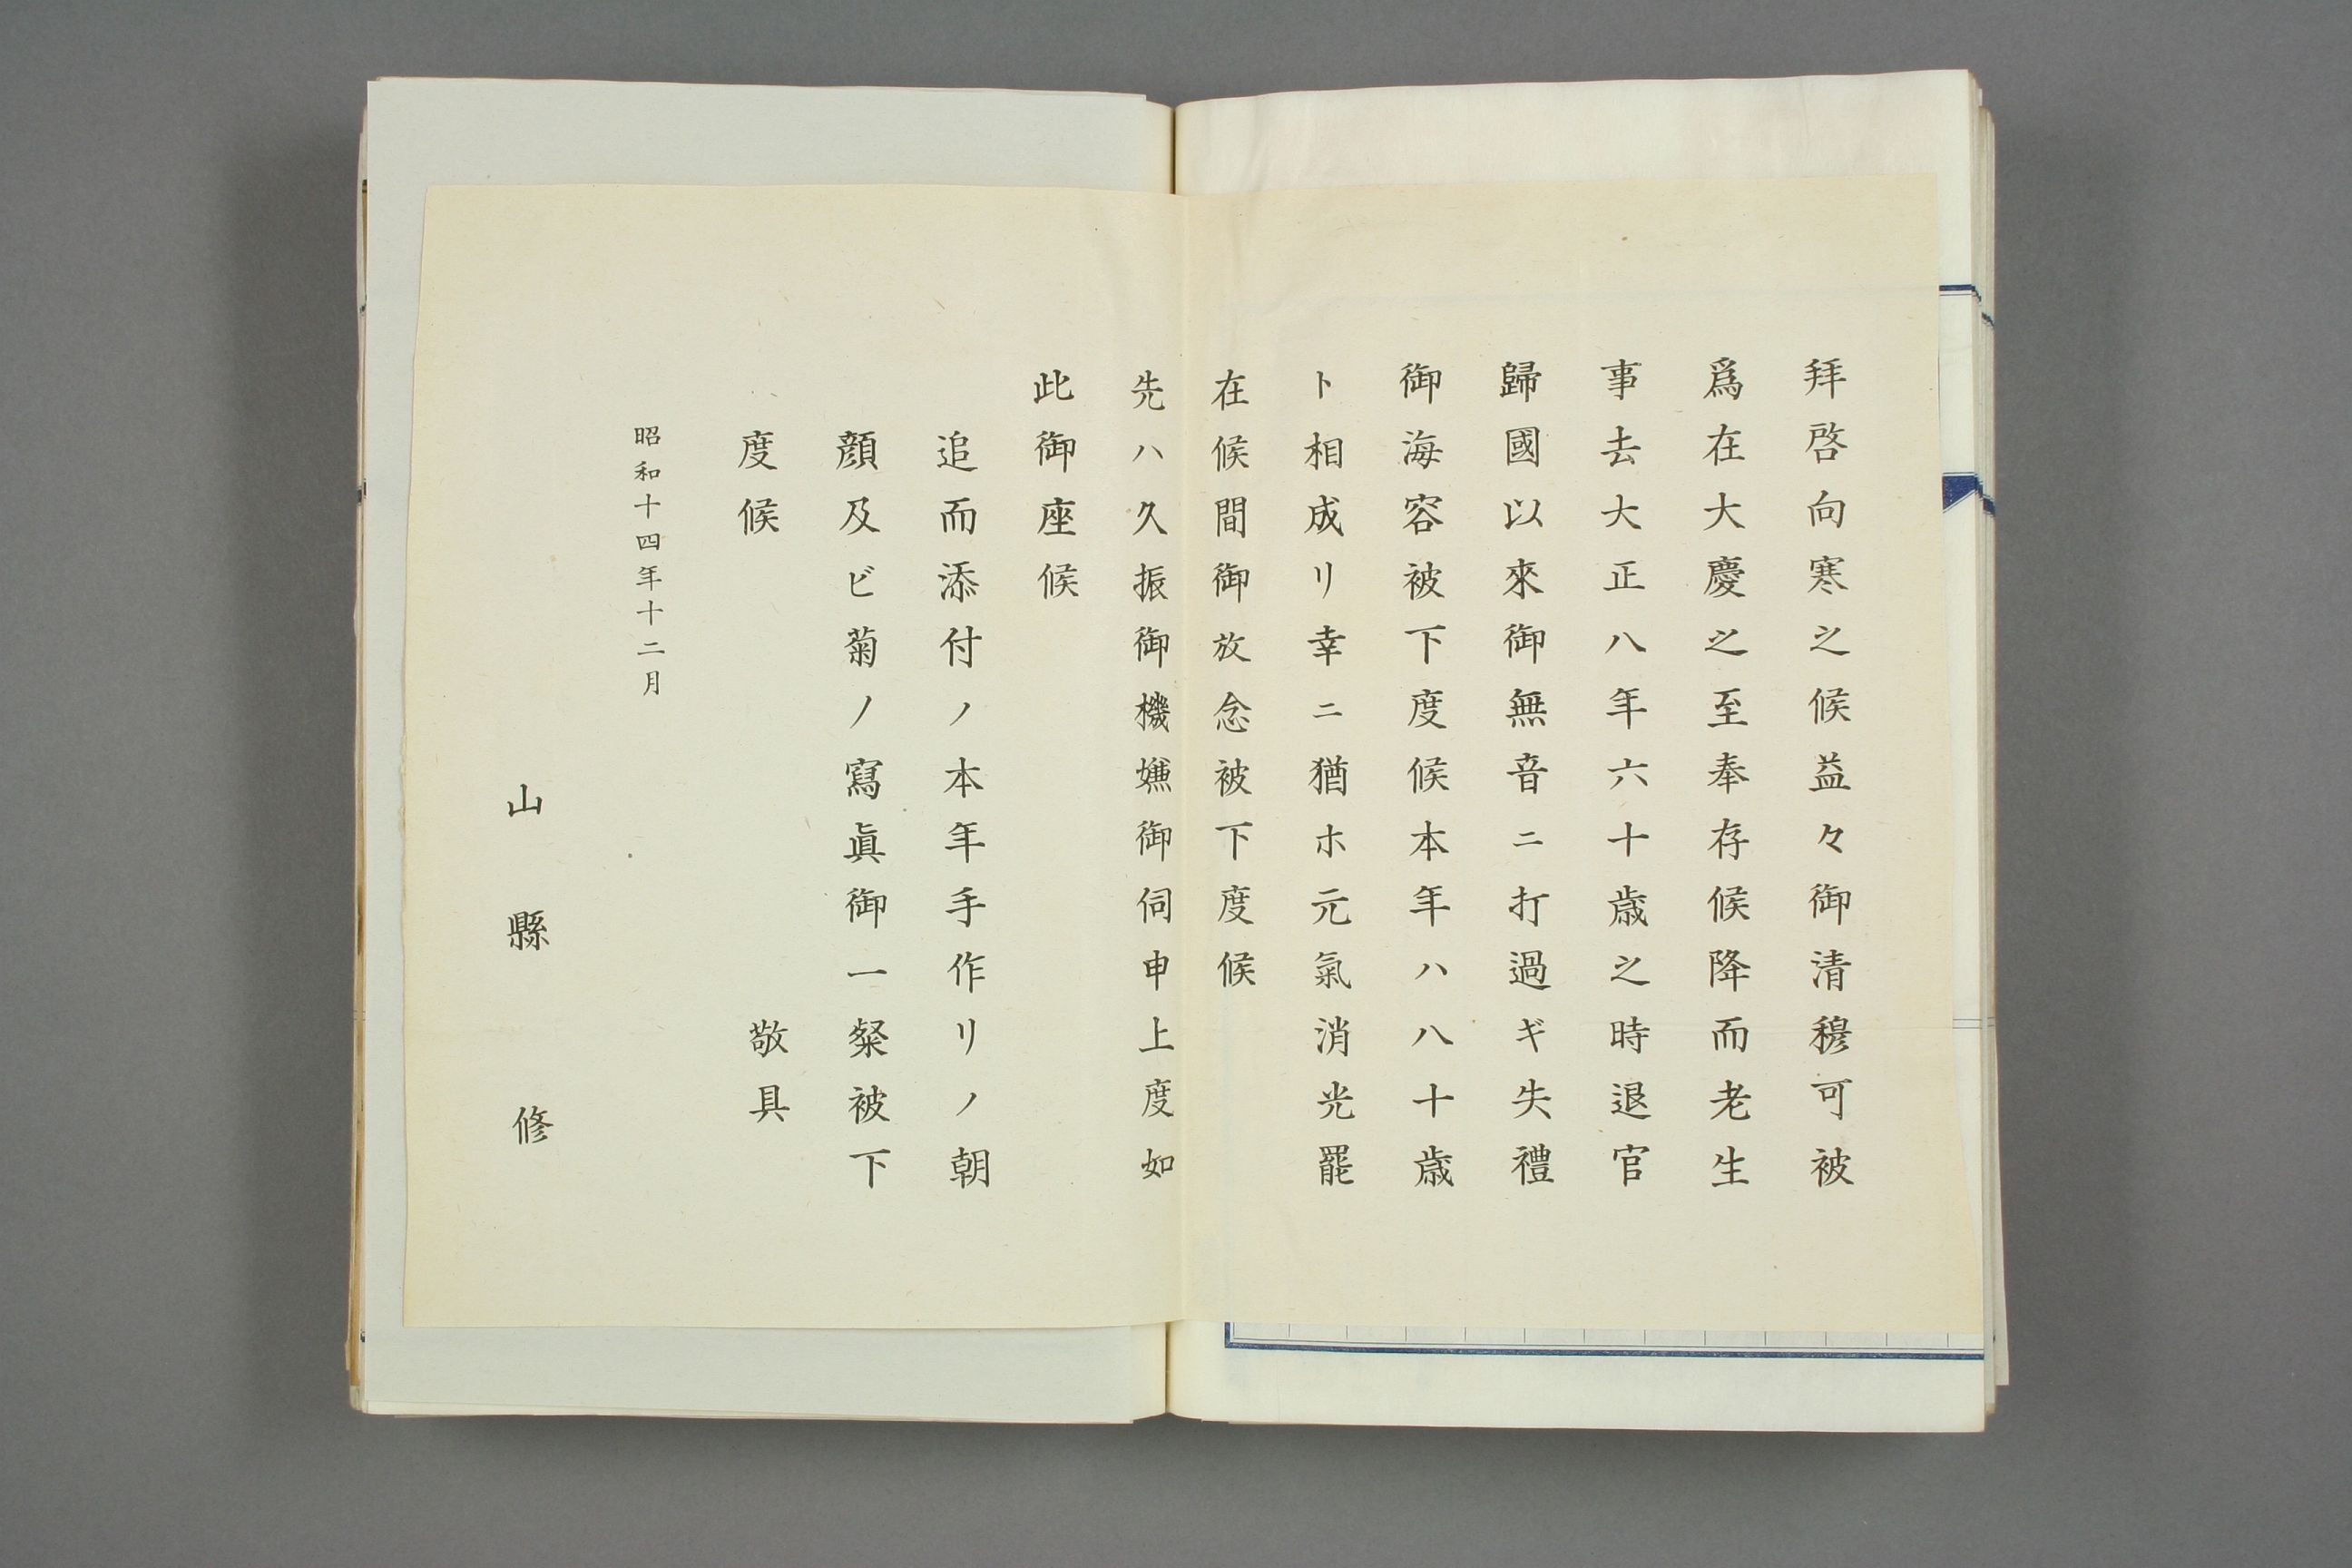 拜啓向寒之候益々御清穆可被
爲在大慶之至奉存候降而老生
事去大正八年六十歳之時退官
歸國以來御無音ニ打過ギ失禮
御海容被下度候本年ハ八十歳
ト相成リ幸ニ猶ホ元氣消光罷
在候間御放念被下度候
先ハ久振御機嫌御伺申上度如
此御座候
追而添付ノ本年手作リノ朝
顔及ビ菊ノ寫眞御一粲被下
度候
敬具
昭和十四年十二月
山縣修